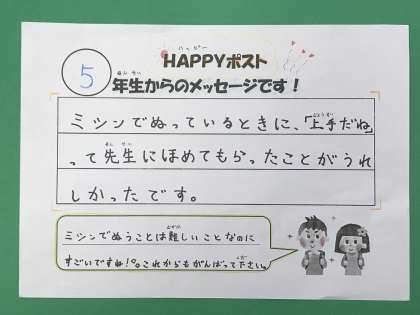 HAPPYポスト
5
年生からのメッセージです！
ミシンでぬっているときに、「上手だね」
って先生にほめてもらったことがうれ
しかったです。
ミシンでぬうことは難しいことなのに
すごいですね！。これからもがんばって下さい。